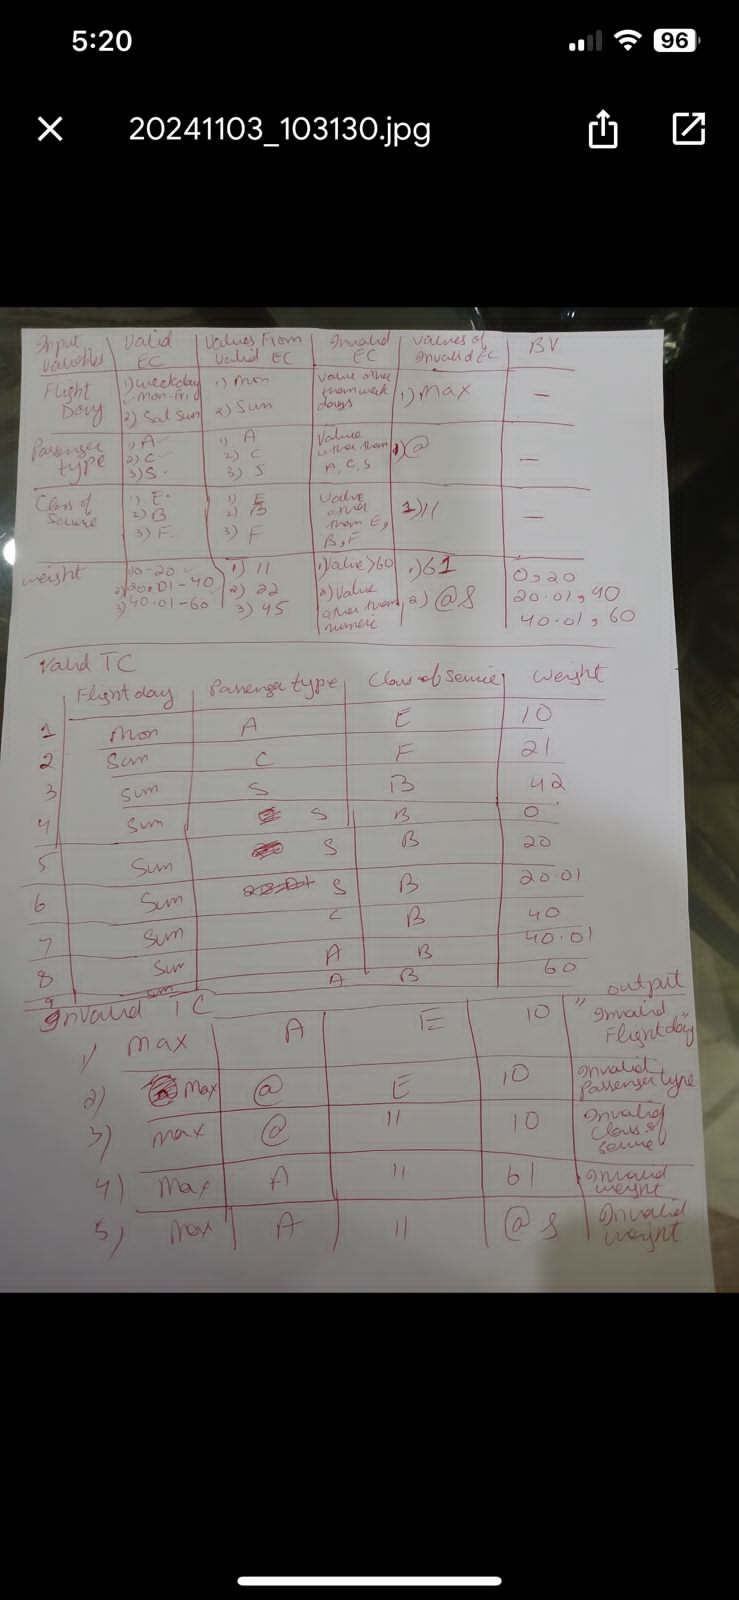 5:20 96
20241103_103130.jpg
Input Variables | Valid EC | Values From Valid EC | Invalid EC | Values of Invalid EC | BV
Flight Day | 1) weekday Mon-Fri 2) Sat Sun | 1) Mon 2) Sun | Value other than week days | 1) Max | —
Passenger type | 1) A 2) C 3) S | 1) A 2) C 3) S | Value other than A, C, S | 1) @ | —
Class of | 1) E 2) B 3) F | 1) E 2) B 3) F | Value other than E, B, F | 1) 11 | —
weight | 0-20 2) 20.01-40 3) 40.01-60 | 1) 11 2) 22 3) 45 | 1) Value >60 2) Value other than numeric | 1) 61 2) @ $ | 0, 20 20.01, 40 40.01, 60
Valid TC
Flight day | Passenger type | Class of Service | Weight
1 | Mon | A | E | 10
2 | Sun | C | F | 21
3 | Sun | S | B | 42
4 | Sun | S | B | 0
5 | Sun | S | B | 20
6 | Sun | S | B | 20.01
7 | Sun | C | B | 40
8 | Sun | A | B | 40.01
9 | Sun | A | B | 60
Invalid TC | output
1) | Max | A | E | 10 | "Invalid Flight day"
2) | Max | @ | E | 10 | Invalid Passenger type
3) | Max | @ | 11 | 10 | Invalid Class of
4) | Max | A | 11 | 61 | Invalid weight
5) | Max | A | 11 | @ $ | Invalid weight